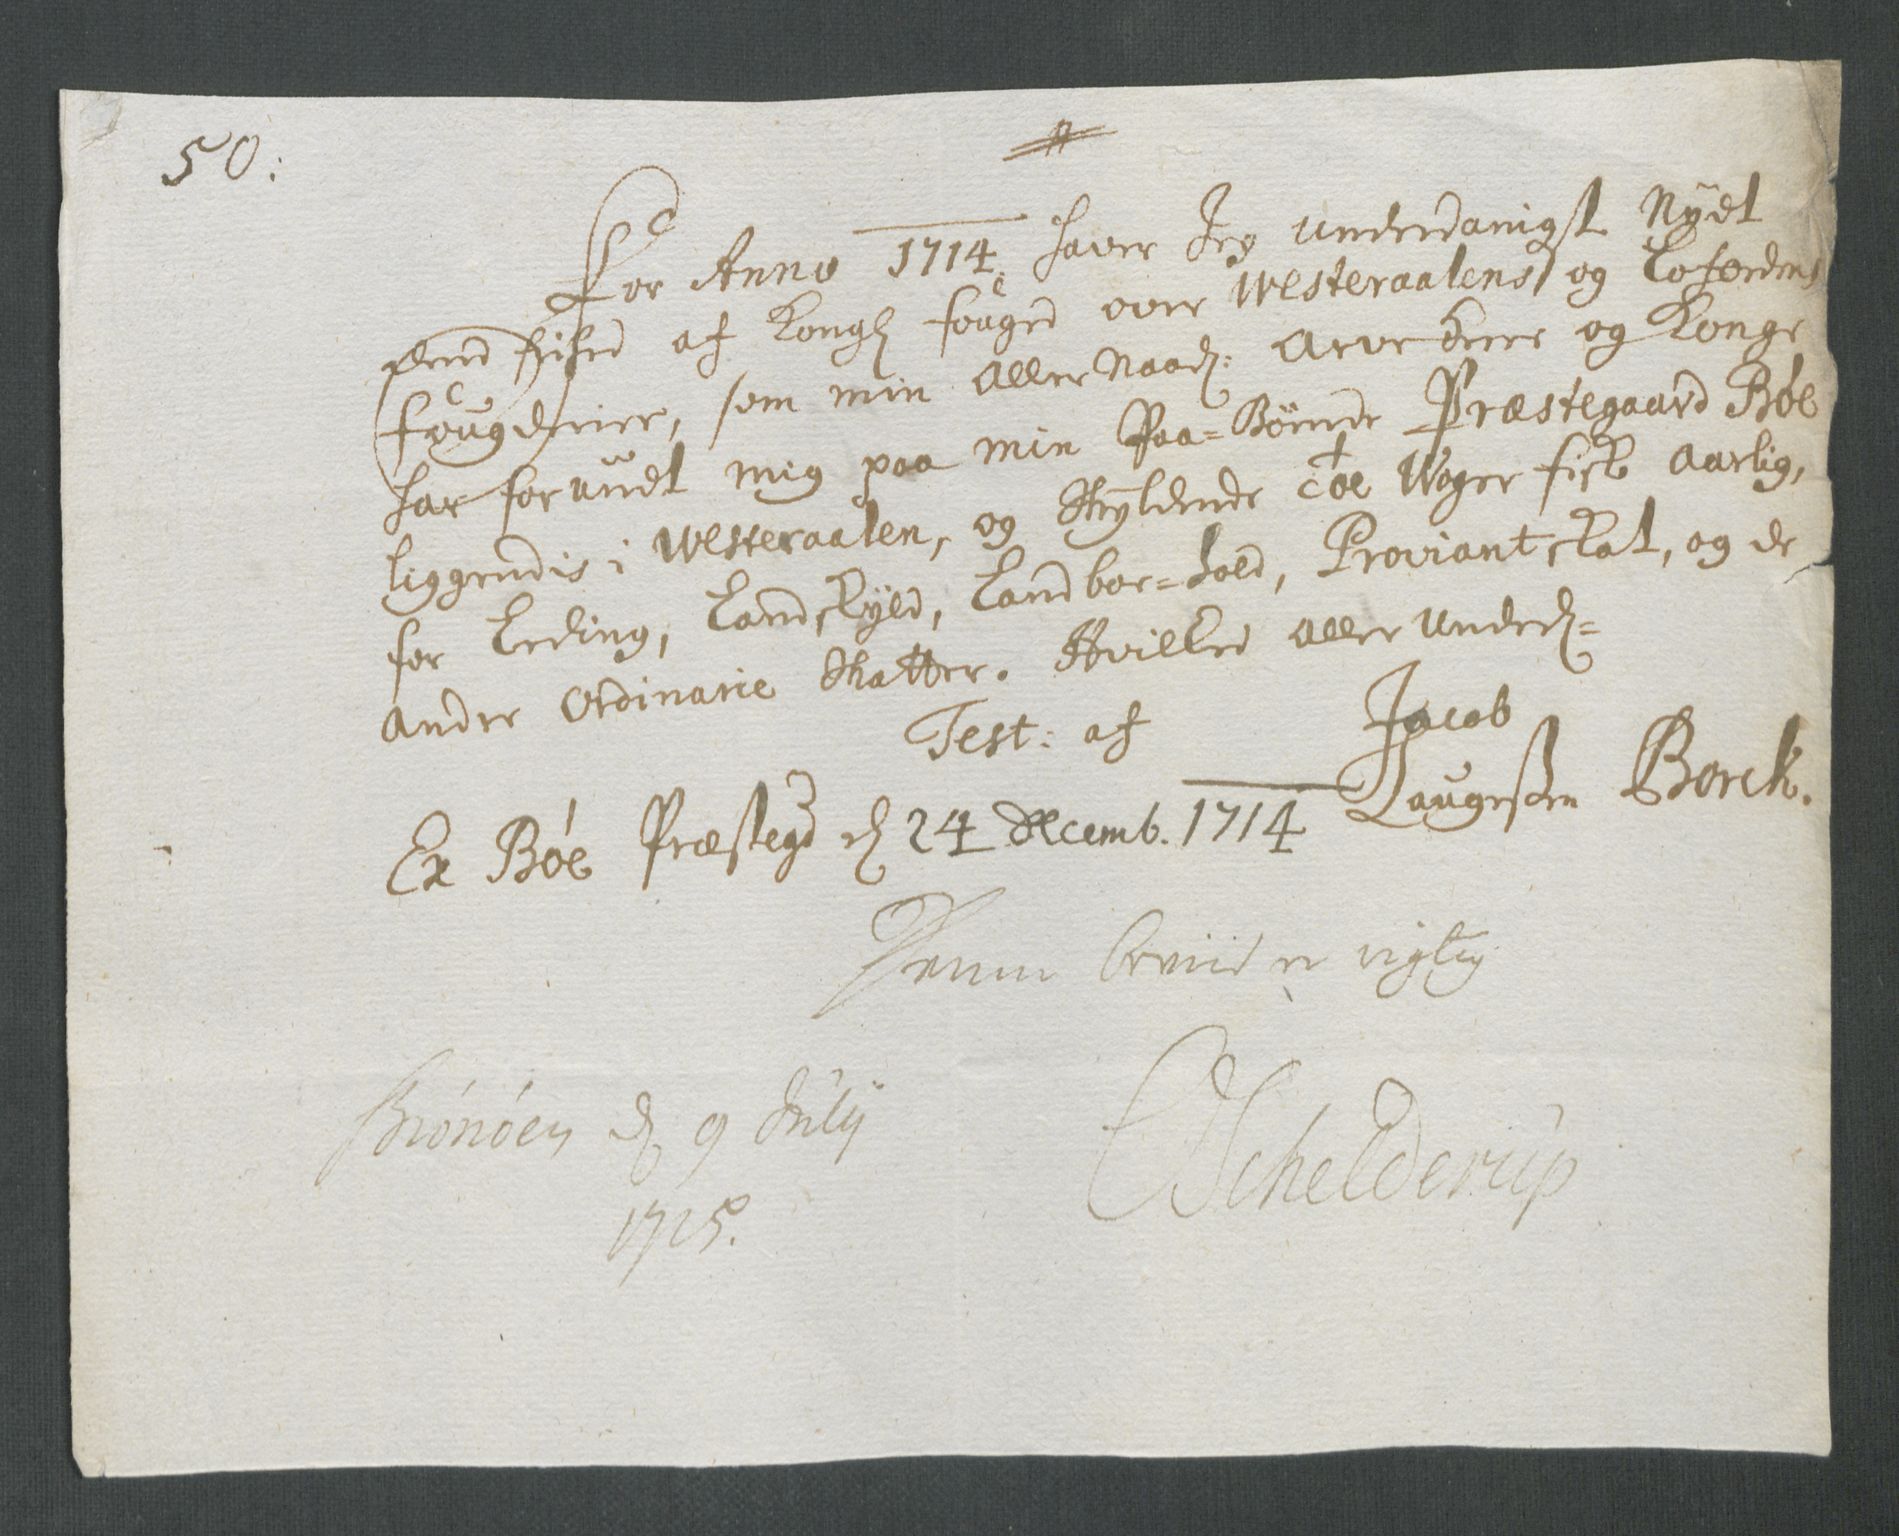 50:
For Anno 1714 haver Jeg underdanigst Nÿdt
dend frihed af Kongl fouged over Westeraalens og Lofodens
fougderier, som min AllerNaad: Arve Herre og Konge
har forundt mig paa min Paa-Boende Præstegaard Bøe
liggendis i Westeraalen, og skyldende toe Woger fisk aarlig,
for Leding, Landskyld, Landbor-hold, Proviant skat, og de
andre Ordinarie Skatter. Hvilked aller underd=
Test: af Jacob
Laugesßen Borck.
Ex Bøe Præstegd d 24 Decemb. 1714
Denne beviis er rigtig
Brønøen d 9 Julÿ
1715.
Schelderup